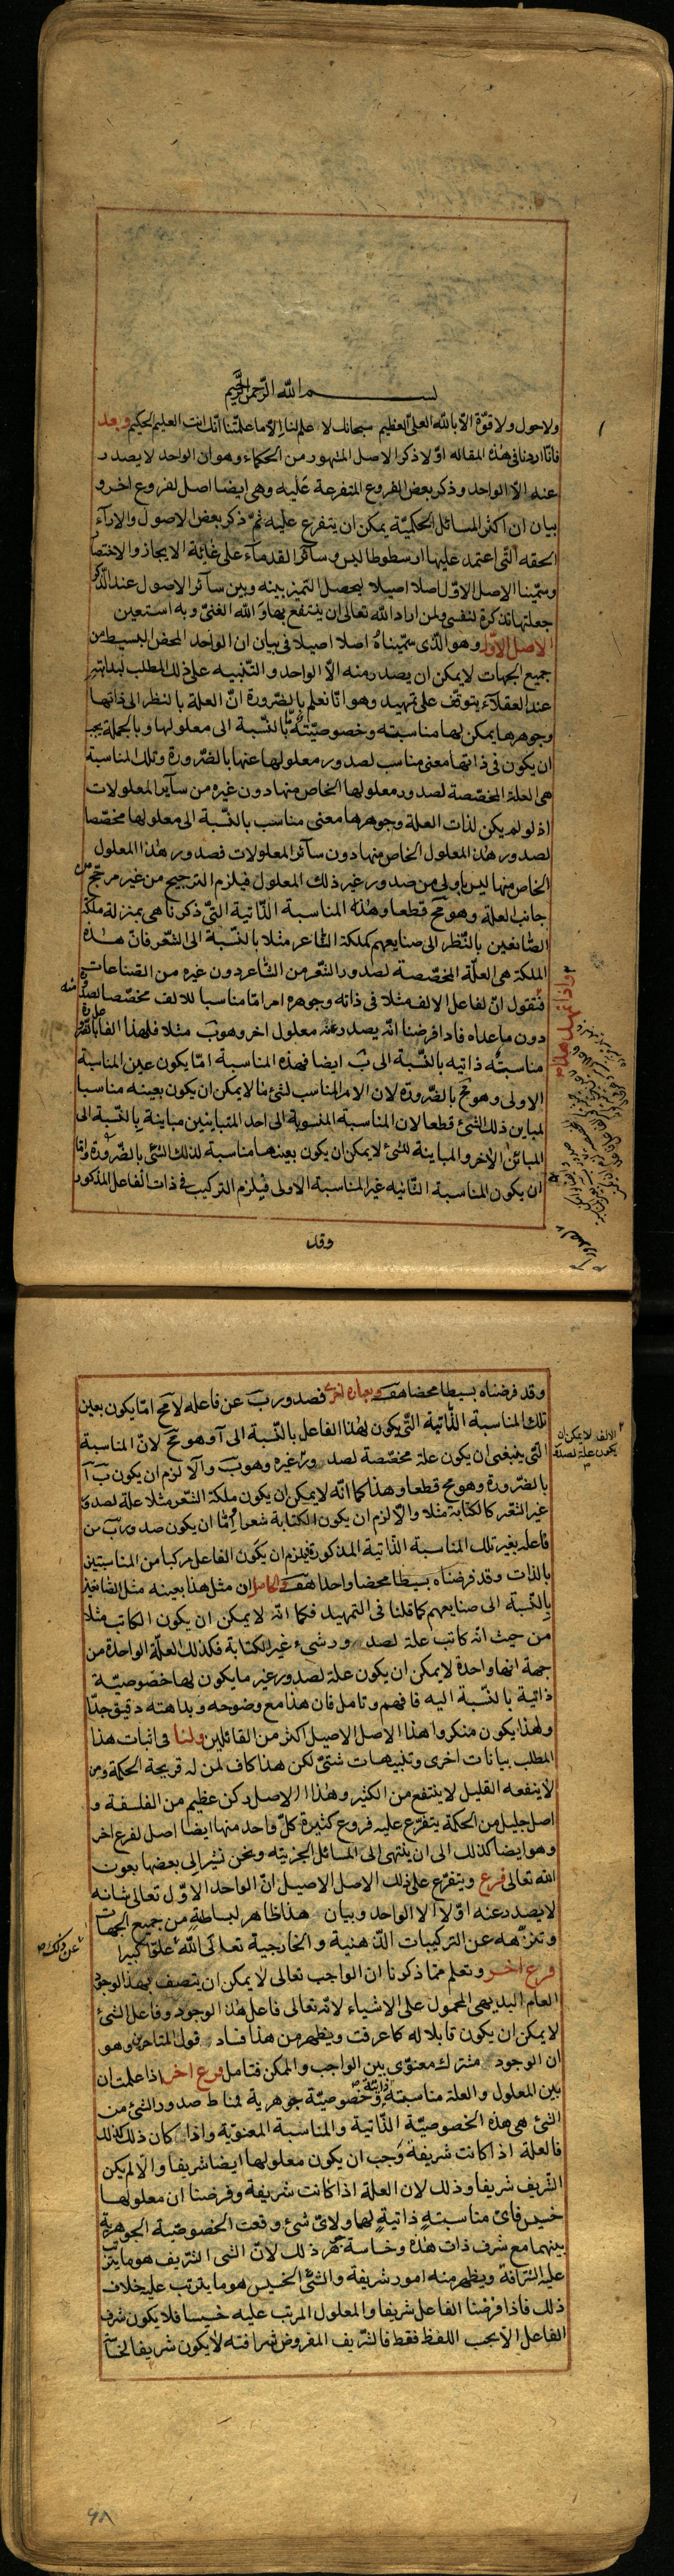 بسم الله الرّحمن الرّحيم
ولا حول ولا قوّة الّا بالله العلىّ العظيم سبحانك لا علم لنا الّا ما علّمتنا انّك انت العليم الحكيم وبعد
فانّا اردنا فى هذه المقاله اوّلا ذكر الاصل المشهور من الحكماء وهو ان الواحد لا يصدر
عنه الّا الواحد وذكر بعض الفروع المتفرعة عليه وهى ايضا اصل لفروع اخر و
بيان ان اكثر المسائل الحكميّة يمكن ان يتفرع عليه ثمّ ذكر بعض الاصول والاراء
الحقه الّتى اعتمد عليها ارسطوطاليس وسائر القدماء على غاية الايجاز والاختصار
وسمّينا الاصل الاوّل اصلا اصيلا ليحصل التميز بينه وبين سائر الاصول عند الذّكر
جعلتها تذكرة لنفسى ولمن اراد الله تعالى ان ينتفع بها والله الغنىّ وبه استعين
الاصل الاوّل وهو الّذى سمّيناه اصلا اصيلا فى بيان ان الواحد المحض البسيط من
جميع الجهات لا يمكن ان يصدر منه الّا الواحد والتّنبيه على ذلك المطلب لبداهته
عند العقلاء يتوقّف على تمهيد وهو انّا نعلم بالضّرورة انّ العلة بالنظر الى ذاتها
وجوهرها يمكن لها مناسبته وخصوصيّته بالنّسبة الى معلولها وبالجملة يجب
ان يكون فى ذاتها معنى مناسب لصدور معلولها عنها بالضّرورة وتلك المناسبة
هى العلة المخصّصة لصدور معلولها الخاص منها دون غيره من سائر المعلولات
اذ لو لم يكن لذات العلة وجوهرها معنى مناسب بالنّسبة الى معلولها مخصّصا
لصدور هذا المعلول الخاص منها دون سائر المعلولات فصدور هذا المعلول
الخاص منها ليس باولى من صدور غير ذلك المعلول فيلزم الترجيح من غير مرجّح من
جانب العلة وهو مح قطعا وهذه المناسبة الذّاتية الّتى ذكرنا هى بمنزلة ملكة
الصّانعين بالنّظر الى صنايعهم كملكة الشّاعر مثلا بالنّسبة الى الشّعر فانّ هذه
الملكة هى العلّة المخصّصة لصدور الشّعر من الشّاعر دون غيره من الصّناعات
واذا تمهّد هذا
فنقول انّ لفاعل الالف مثلا فى ذاته وجوهره امرا مّا مناسبا للالف مخصّصا لصدوره منه
دون ما عداه فاذا فرضنا انّه يصدر عنه معلول اخر وهو ب مثلا فلهذا الفاعل
مناسبته ذاتيه بالنّسبة الى ب ايضا فهذه المناسبة امّا يكون عين المناسبة
الاولى وهو مح بالضّرورة لان الامر المناسب لشئ ما لا يمكن ان يكون بعينه مناسبا
لمباين ذلك الشئ قطعا لان المناسبة المنسوبة الى احد المتباينين مباينة بالنّسبة الى
المباين الاخر والمباينة للشئ لا يمكن ان يكون بعينها مناسبة لذلك الشئ بالضّرورة وامّا
ان يكون المناسبة الثانيه غير المناسبة الاولى فيلزم التركيب فى ذات الفاعل المذكور
وقد
وقد فرضناه بسيطا محضا هف وبعبارة اخرى فصدور ب عن فاعله لا مح امّا يكون بعين
تلك المناسبة الذّاتية الّتى يكون لهذا الفاعل بالنّسبة الى آ وهو مح لانّ المناسبة
الالف لا يمكن ان
يكون علة لصدور
الّتى ينبغى ان يكون علة مخصّصة لصدور غيره وهو ب والّا لزم ان يكون ب آ
بالضّرورة وهو مح قطعا وهذا كما انّه لا يمكن ان يكون ملكة الشّعر مثلا علة لصدور
غير الشّعر كالكتابة مثلا والّا لزم ان يكون الكتابة شعرا وامّا ان يكون صدور ب من
فاعله بغير تلك المناسبة الذّاتية المذكورة فيلزم ان يكون الفاعل مركبا من المناسبتين
بالذات وقد فرضناه بسيطا محضا واحدا هف والحاصل ان مثل هذا بعينه مثل الصّانعين
بالنّسبة الى صنايعهم كما قلنا فى التمهيد فكما انّه لا يمكن ان يكون الكاتب مثلا
من حيث انّه كاتب علة لصدور شىء غير الكتابة فكذلك العلّة الواحدة من
جهة انها واحدة لا يمكن ان يكون علة لصدور غير ما يكون لها خصوصيّة
ذاتية بالنّسبة اليه فافهم وتامل فان هذا مع وضوحه وبداهته دقيق جدّا
ولهذا يكون منكروا هذا الاصل الاصيل اكثر من القائلين ولنا فى اثبات هذا
المطلب بيانات اخرى وتنبيهات شتّى لكن هذا كاف لمن له قريحة الحكمة ومن
لا ينفعه القليل لا ينتفع من الكثير وهذا الاصل ركن عظيم من الفلسفة و
اصل جليل من الحكمة يتفرّع عليه فروع كثيرة كلّ واحد منها ايضا اصل لفرع اخر
وهو ايضا كذلك الى ان ينتهى الى المسائل الجزئيّه ونحن نشير الى بعضها بعون
الله تعالى فرع ويتفرّع على ذلك الاصل الاصيل انّ الواحد الاوّل تعالى شانه
لا يصدر عنه اوّلا الا الواحد وبيان هذا ظاهر لبساطته من جميع الجهات
وتنزّهه عن التركيبات الذّهنية والخارجية تعالى الله عن ذلك علوّا كبيرا
فرع اخر وتعلم ممّا ذكرنا ان الواجب تعالى لا يمكن ان يتصف بهذا الوجود
العام البديهى المحمول على الاشياء لانّه تعالى فاعل هذا الوجود وفاعل الشئ
لا يمكن ان يكون قابلا له كما عرفت ويظهر من هذا فساد قول المتاخرين وهو
ان الوجود مشترك معنوّى بين الواجب والممكن فتامل فرع اخر اذا علمت ان
بين المعلول والعلة مناسبته ذاتيّة وخصوصيّة جوهرية فمناط صدور الشئ من
الشئ هى هذه الخصوصيّة الذّاتية والمناسبة المعنويّة واذا كان ذلك كذلك
فالعلة اذا كانت شريفة وجب ان يكون معلولها ايضا شريفا والّا لم يكن
الشّريف شريفا وذلك لان العلة اذا كانت شريفة وفرضنا ان معلولها
خسيس فاىّ مناسبتهٍ ذاتيةٍ لها ولاىّ شئ وقعت الخصوصيّة الجوهرية
بينهما مع شرف ذات هذه وخاسة جوهر ذلك لانّ الشى الشّريف هو ما يترتّب
عليه الشرافة ويظهر منه امور شريفة والشّئ الخسيس هو ما يترتب عليه خلاف
ذلك فاذا فرضنا الفاعل شريفا والمعلول المرتب عليه خسيسا فلا يكون شرف
الفاعل الّا بحسب اللفظ فقط فالشّريف المفروض شرافته لا يكون شريفا لخسّة
٩٨